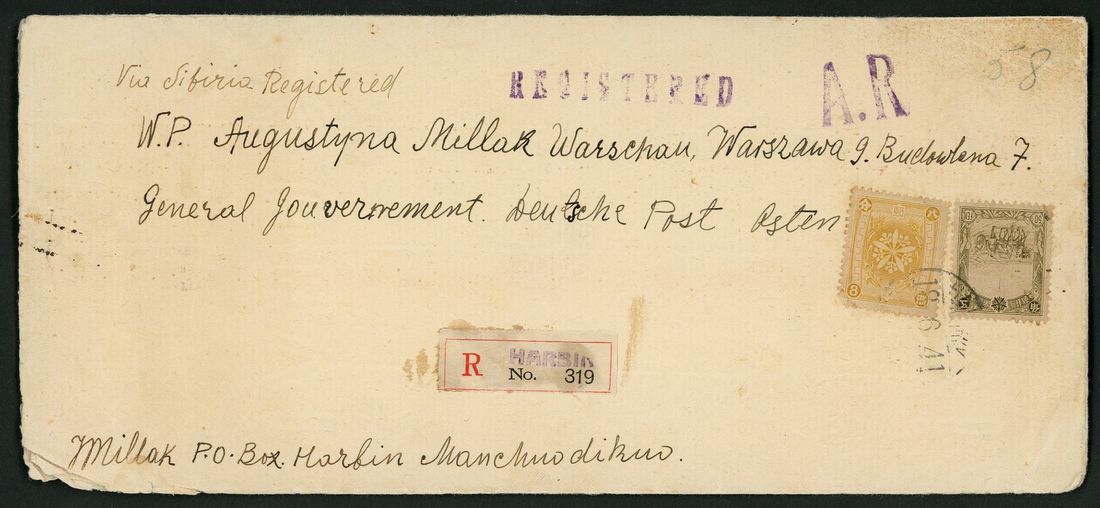 58
Via Sibiria Registered
REGISTERED
A.R
W.P. Augustyna Millak Warschau, Warszawa g. Budowlana 7.
General Gouvernement. Deutsche Post Osten
8
8
18.6.41
R HARBIN
No. 319
JMillak P.O. Box. Harbin Manchuodikuo.